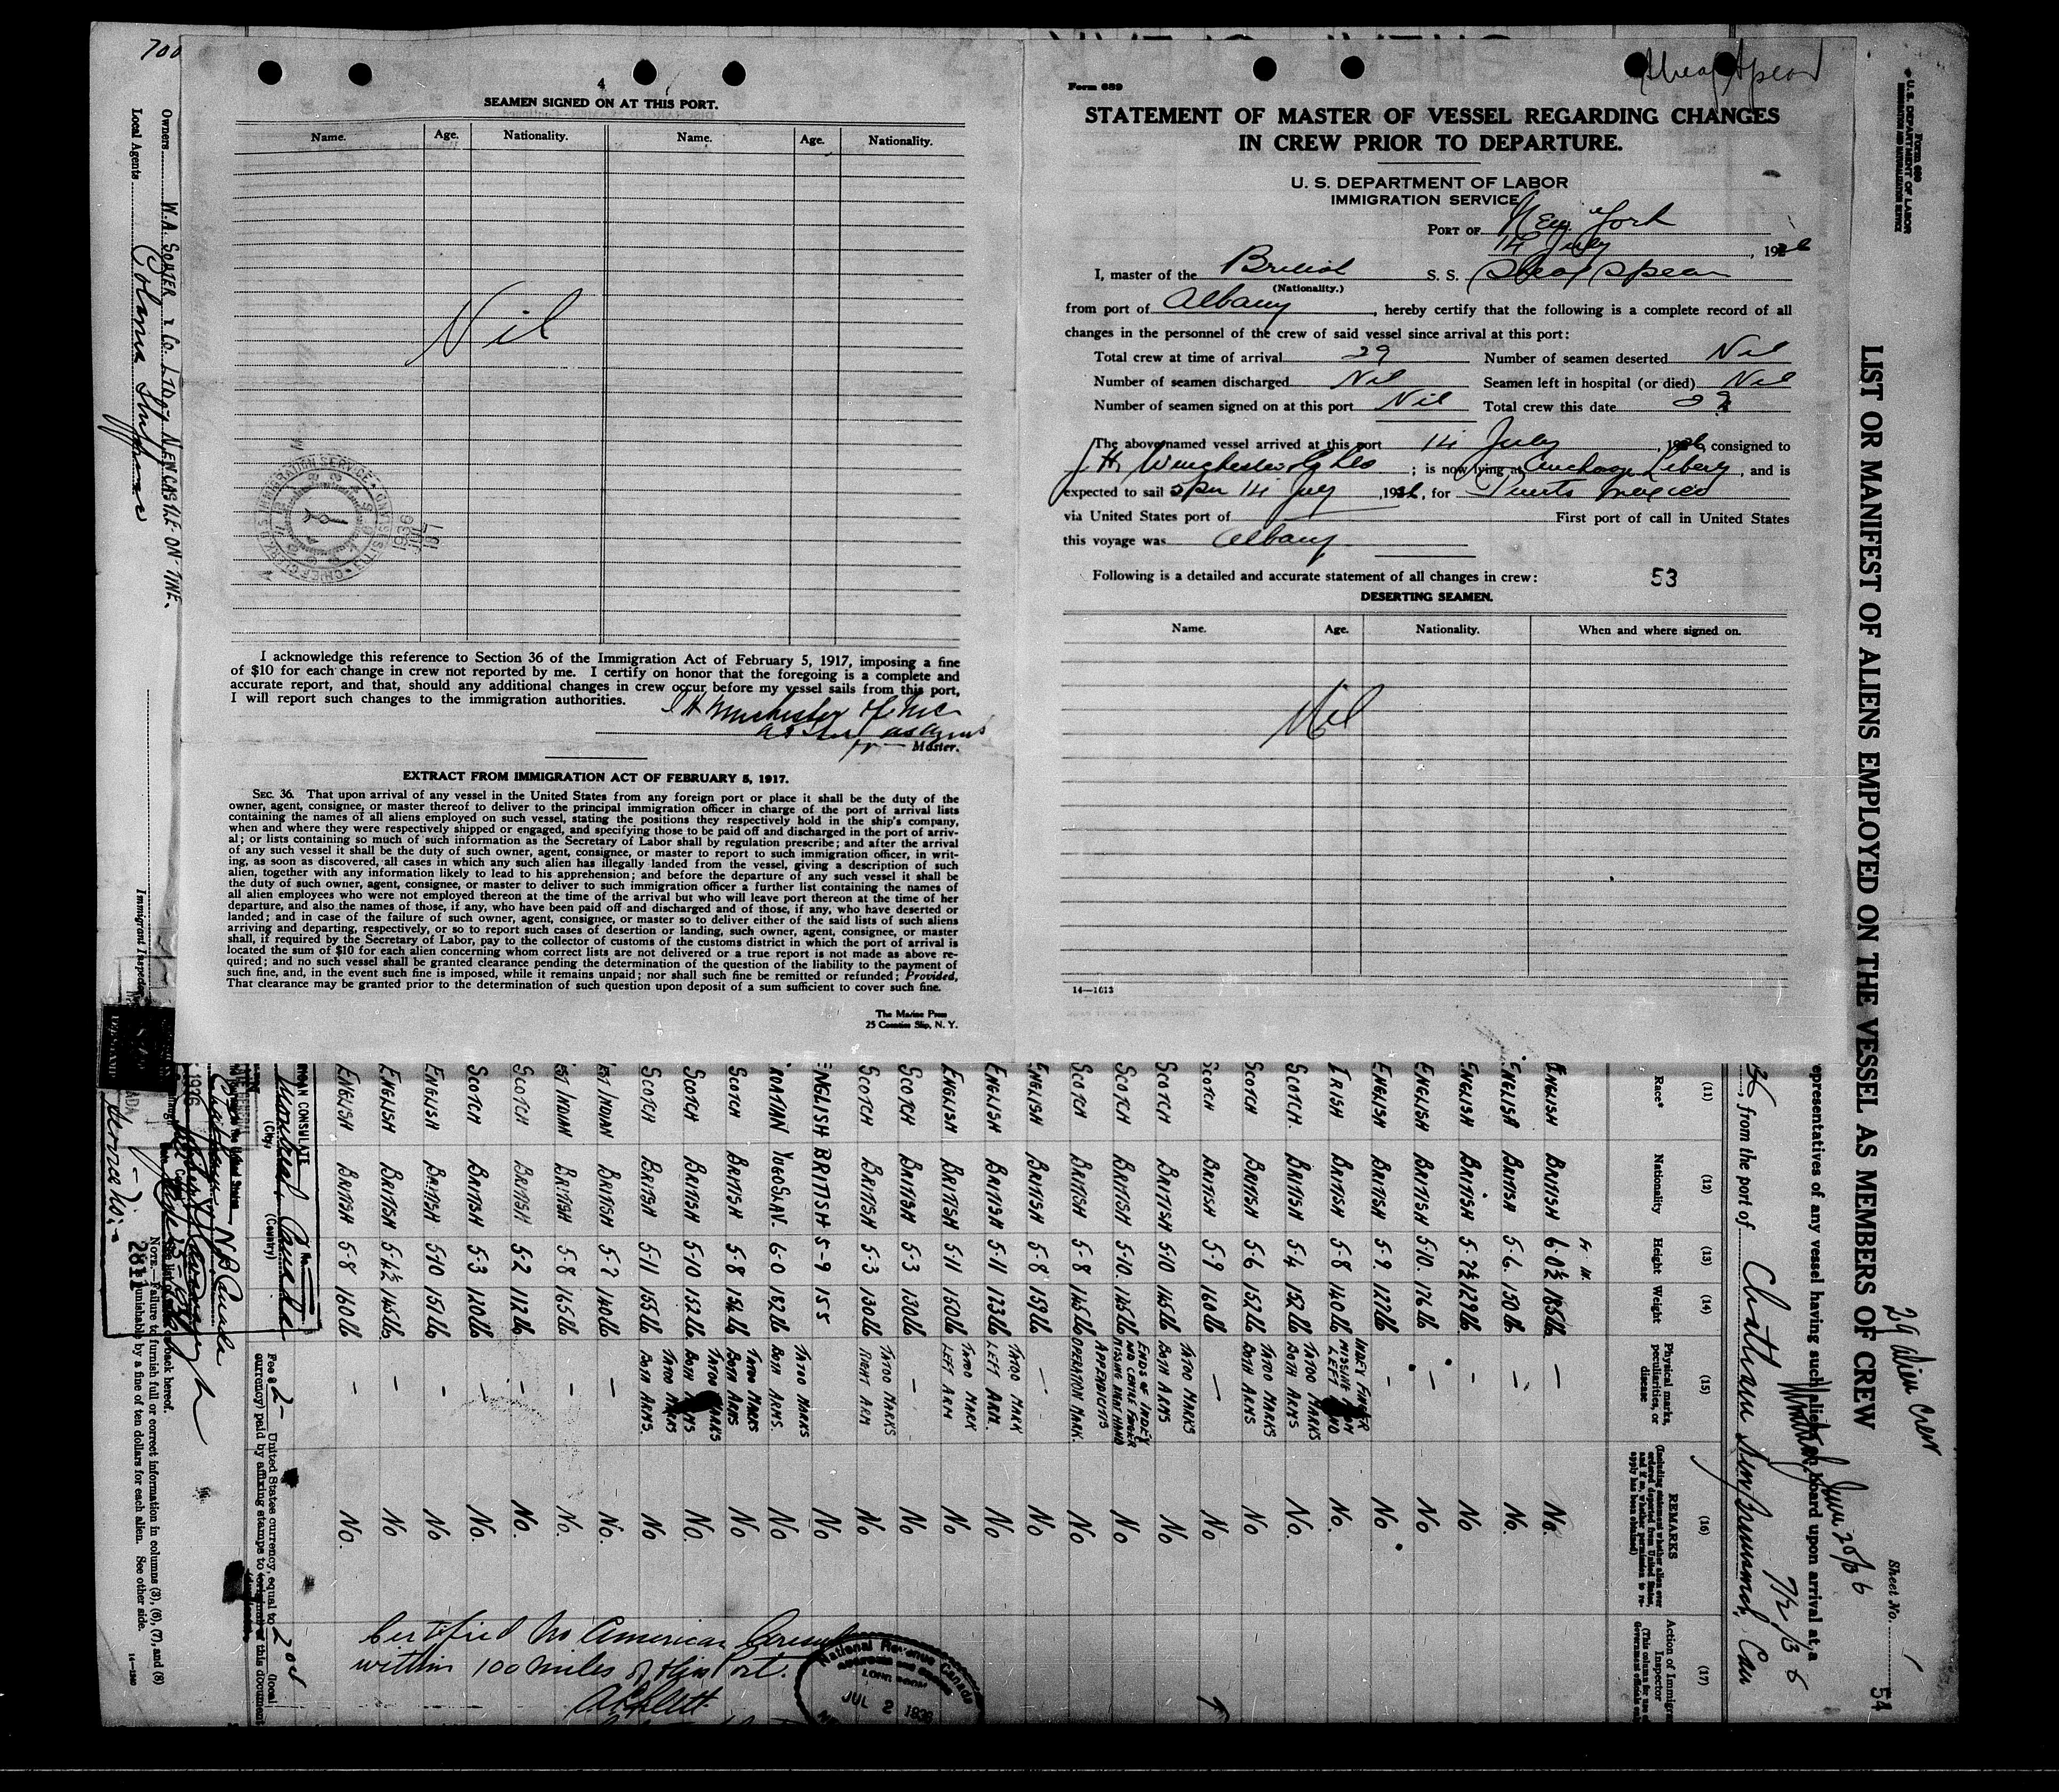 700
4
SEAMEN SIGNED ON AT THIS PORT.
Name. Age. Nationality. Name. Age. Nationality.
Nil
I acknowledge this reference to Section 36 of the Immigration Act of February 5, 1917, imposing a fine
of $10 for each change in crew not reported by me. I certify on honor that the foregoing is a complete and
accurate report, and that, should any additional changes in crew occur before my vessel sails from this port,
I will report such changes to the immigration authorities.
Master.
EXTRACT FROM IMMIGRATION ACT OF FEBRUARY 5, 1917.
SEC. 36. That upon arrival of any vessel in the United States from any foreign port or place it shall be the duty of the
owner, agent, consignee, or master thereof to deliver to the principal immigration officer in charge of the port of arrival lists
containing the names of all aliens employed on such vessel, stating the positions they respectively hold in the ship's company,
when and where they were respectively shipped or engaged, and specifying those to be paid off and discharged in the port of arriv-
al; or lists containing so much of such information as the Secretary of Labor shall by regulation prescribe; and after the arrival
of any such vessel it shall be the duty of such owner, agent, consignee, or master to report to such immigration officer, in writ-
ing, as soon as discovered, all cases in which any such alien has illegally landed from the vessel, giving a description of such
alien, together with any information likely to lead to his apprehension; and before the departure of any such vessel it shall be
the duty of such owner, agent, consignee, or master to deliver to such immigration officer a further list containing the names of
all alien employees who were not employed thereon at the time of the arrival but who will leave port thereon at the time of her
departure, and also the names of those, if any, who have been paid off and discharged and of those, if any, who have deserted or
landed; and in case of the failure of such owner, agent, consignee, or master so to deliver either of the said lists of such aliens
arriving and departing, respectively, or so to report such cases of desertion or landing, such owner, agent, consignee, or master
shall, if required by the Secretary of Labor, pay to the collector of customs of the customs district in which the port of arrival is
located the sum of $10 for each alien concerning whom correct lists are not delivered or a true report is not made as above re-
quired; and no such vessel shall be granted clearance pending the determination of the question of the liability to the payment of
such fine, and, in the event such fine is imposed, while it remains unpaid; nor shall such fine be remitted or refunded; Provided,
That clearance may be granted prior to the determination of such question upon deposit of a sum sufficient to cover such fine.
The Marine Press
25 Coenties Slip, N. Y.
Form 689
STATEMENT OF MASTER OF VESSEL REGARDING CHANGES
IN CREW PRIOR TO DEPARTURE.
U. S. DEPARTMENT OF LABOR
IMMIGRATION SERVICE
PORT OF New York
14 July, 1936
I, master of the British S. S. Sheaf Spear
(Nationality.)
from port of Albany, hereby certify that the following is a complete record of all
changes in the personnel of the crew of said vessel since arrival at this port:
Total crew at time of arrival 29 Number of seamen deserted Nil
Number of seamen discharged Nil Seamen left in hospital (or died) Nil
Number of seamen signed on at this port Nil Total crew this date 29
The above named vessel arrived at this port 14 July, 1936, consigned to
J H Winchester & Co; is now lying at Anchorage Liberty, and is
expected to sail 5 pm 14 July, 1936, for Puerto Mexico
via United States port of First port of call in United States
this voyage was Albany
Following is a detailed and accurate statement of all changes in crew: 53
DESERTING SEAMEN.
Name. Age. Nationality. When and where signed on.
Nil
14—1613
Sheaf Spear
Form 680
U. S. DEPARTMENT OF LABOR
IMMIGRATION AND NATURALIZATION SERVICE
LIST OR MANIFEST OF ALIENS EMPLOYED ON THE VESSEL AS MEMBERS OF CREW
29 alien crew
Sheet No. 1
54
epresentatives of any vessel having such aliens on board upon arrival at a
36, from the port of Chatham New Brunswick, Can
7/2/36
(11) (12) (13) (14) (15) (16) (17)
Race* Nationality Height Weight Physical marks, peculiarities, or disease REMARKS Action of Immigrant Inspector
Ft. In.
ENGLISH BRITISH 6-0½ 185lb — No.
ENGLISH BRITISH 5-6. 150 lb — No.
ENGLISH BRITISH 5-7½ 129lb — No
ENGLISH BRITISH 5-10. 176 lb — No
ENGLISH BRITISH 5-9 127lb — No
IRISH BRITISH 5-8 140lb INDEX FINGER MISSING FROM LEFT HAND No.
SCOTCH. BRITISH 5-4 152lb TATOO MARKS BOTH ARMS No.
SCOTCH BRITISH 5-6 152lb TATOO MARKS BOTH ARMS No
SCOTCH BRITISH 5-9 160lb — No
SCOTCH BRITISH 5-10 145lb TATOO MARKS BOTH ARMS No
SCOTCH BRITISH 5-10. 135lb ENDS OF INDEX AND CENTRE FINGER MISSING RIGHT HAND No
SCOTCH BRITISH 5-8 145lb OPERATION MARK. APPENDICITIS No
ENGLISH BRITISH 5-8 159lb — No
ENGLISH BRITISH 5-11 133lb TATOO MARK LEFT ARM. No
ENGLISH BRITISH 5-11 150lb TATOO MARK LEFT ARM No
SCOTCH BRITISH 5-3 130lb — No
SCOTCH BRITISH 5-3 130lb TATOO MARKS RIGHT ARM No
ENGLISH BRITISH 5-9 155 No
ROATIAN YUGOSLAV. 6-0 182lb TATOO MARKS BOTH ARMS. No
SCOTCH BRITISH 5-8 154lb TATOO MARKS BOTH ARMS No
SCOTCH BRITISH 5-10 152lb TATOO MARKS BOTH ARMS No
SCOTCH BRITISH 5-11 155lb TATOO MARKS BOTH ARMS. No
EST INDIAN BRITISH 5-7 140lb — No.
EST INDIAN BRITISH 5-8 165lb — No.
SCOTCH BRITISH 5-2 112lb — No.
SCOTCH BRITISH 5-3 120lb — No.
ENGLISH BRITISH 5-10 151lb — No
ENGLISH BRITISH 5-4½ 145lb. — No
ENGLISH BRITISH 5-8 160lb — No.
Certified No American Consul
within 100 miles of this Port.
National Revenue Canada
LONG ROOM
JUL 2 1936
ICAN CONSULATE
Montreal, Canada
(City) (Country)
Service No.
2811
Fee $ 2— United States currency, equal to 2.00 (local
currency) paid by affixing stamps to
this document
NOTE.—Failure to furnish full or correct information in columns (3), (6), (7), and (8)
punishable by a fine of ten dollars for each alien. See other side.
14—1240
Owners W.A. SOUTER & Co. LTD. NEWCASTLE-ON-TYNE.
Local Agents
Immigrant Inspector